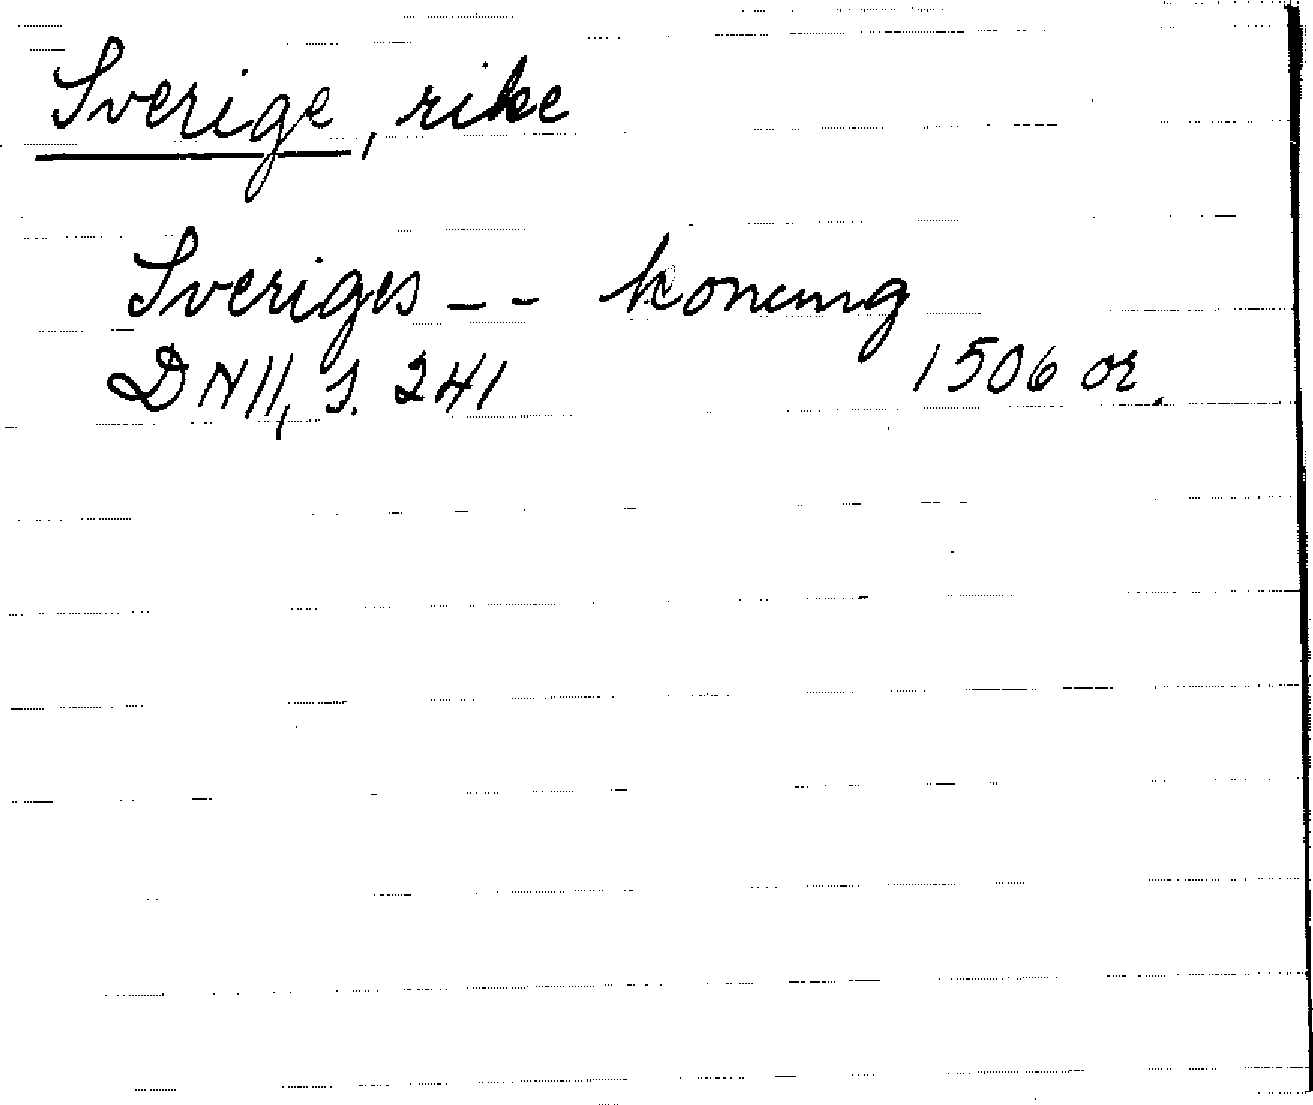 Sverige, rike
Sveriges -- konung
DN II, s. 241 1506 or.